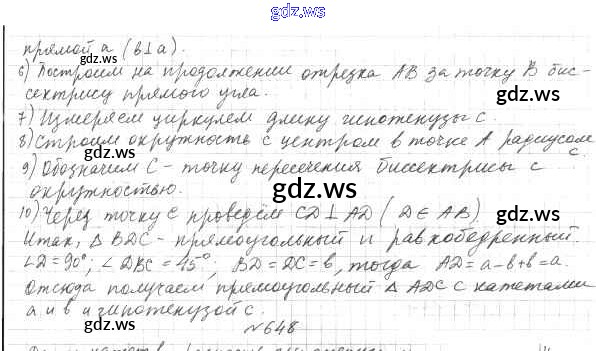 gdz.ws
прямой a (b⊥a).
gdz.ws
gdz.ws
6) Построим на продолжении отрезка AB за точку B бис-
сектрису прямого угла.
gdz.ws
7) Измеряем циркулем длину гипотенузы c.
8) Строим окружность с центром в точке A радиусом
c.
gdz.ws
9) Обозначим C - точку пересечения биссектрисы с
окружностью.
gdz.ws
10) Через точку C проведём CD⊥AD (D∈AB).
Итак, △BDC - прямоугольный и равнобедренный.
∠D=90°, ∠DBC=45°, BD=DC=b, тогда AD=a-b+b=a.
Отсюда получаем прямоугольный △ADC с катетами
gdz.ws
gdz.ws
a и b и гипотенузой c.
№648